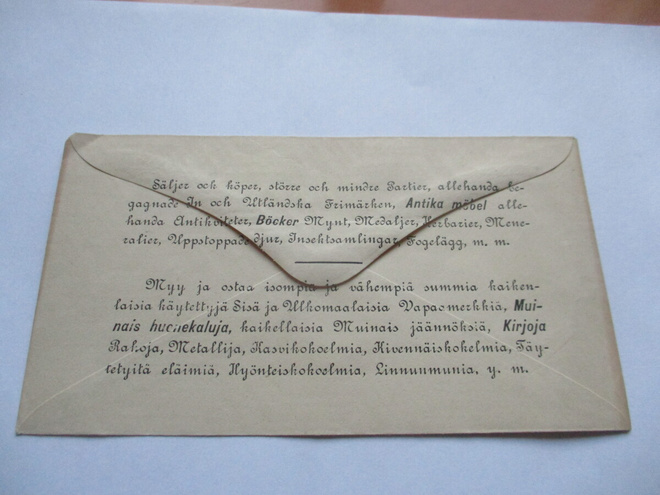 Säljer och köper, större och mindre Partier, allehanda be-
gagnade In och Utländska Frimärken, Antika möbel alle-
handa Antikviteter, Böcker Mynt, Medaljer, Herbarier, Mene-
ralier, Uppstoppade djur, Insektsamlingar, Fogelägg, m. m.
Myy ja ostaa isompia ja vähempiä summia kaiken-
laisia käytettyjä Sisä ja Ulkomaalaisia Vapaomerkkiä, Mui-
nais huonekaluja, kaikellaisia Muinais jäännöksiä, Kirjoja
Rahoja, Metallija, Kasvikokoelmia, Kivennäiskokelmia, Täy-
tetyitä eläimiä, Hyönteiskokoelmia, Linnunmunia, y. m.